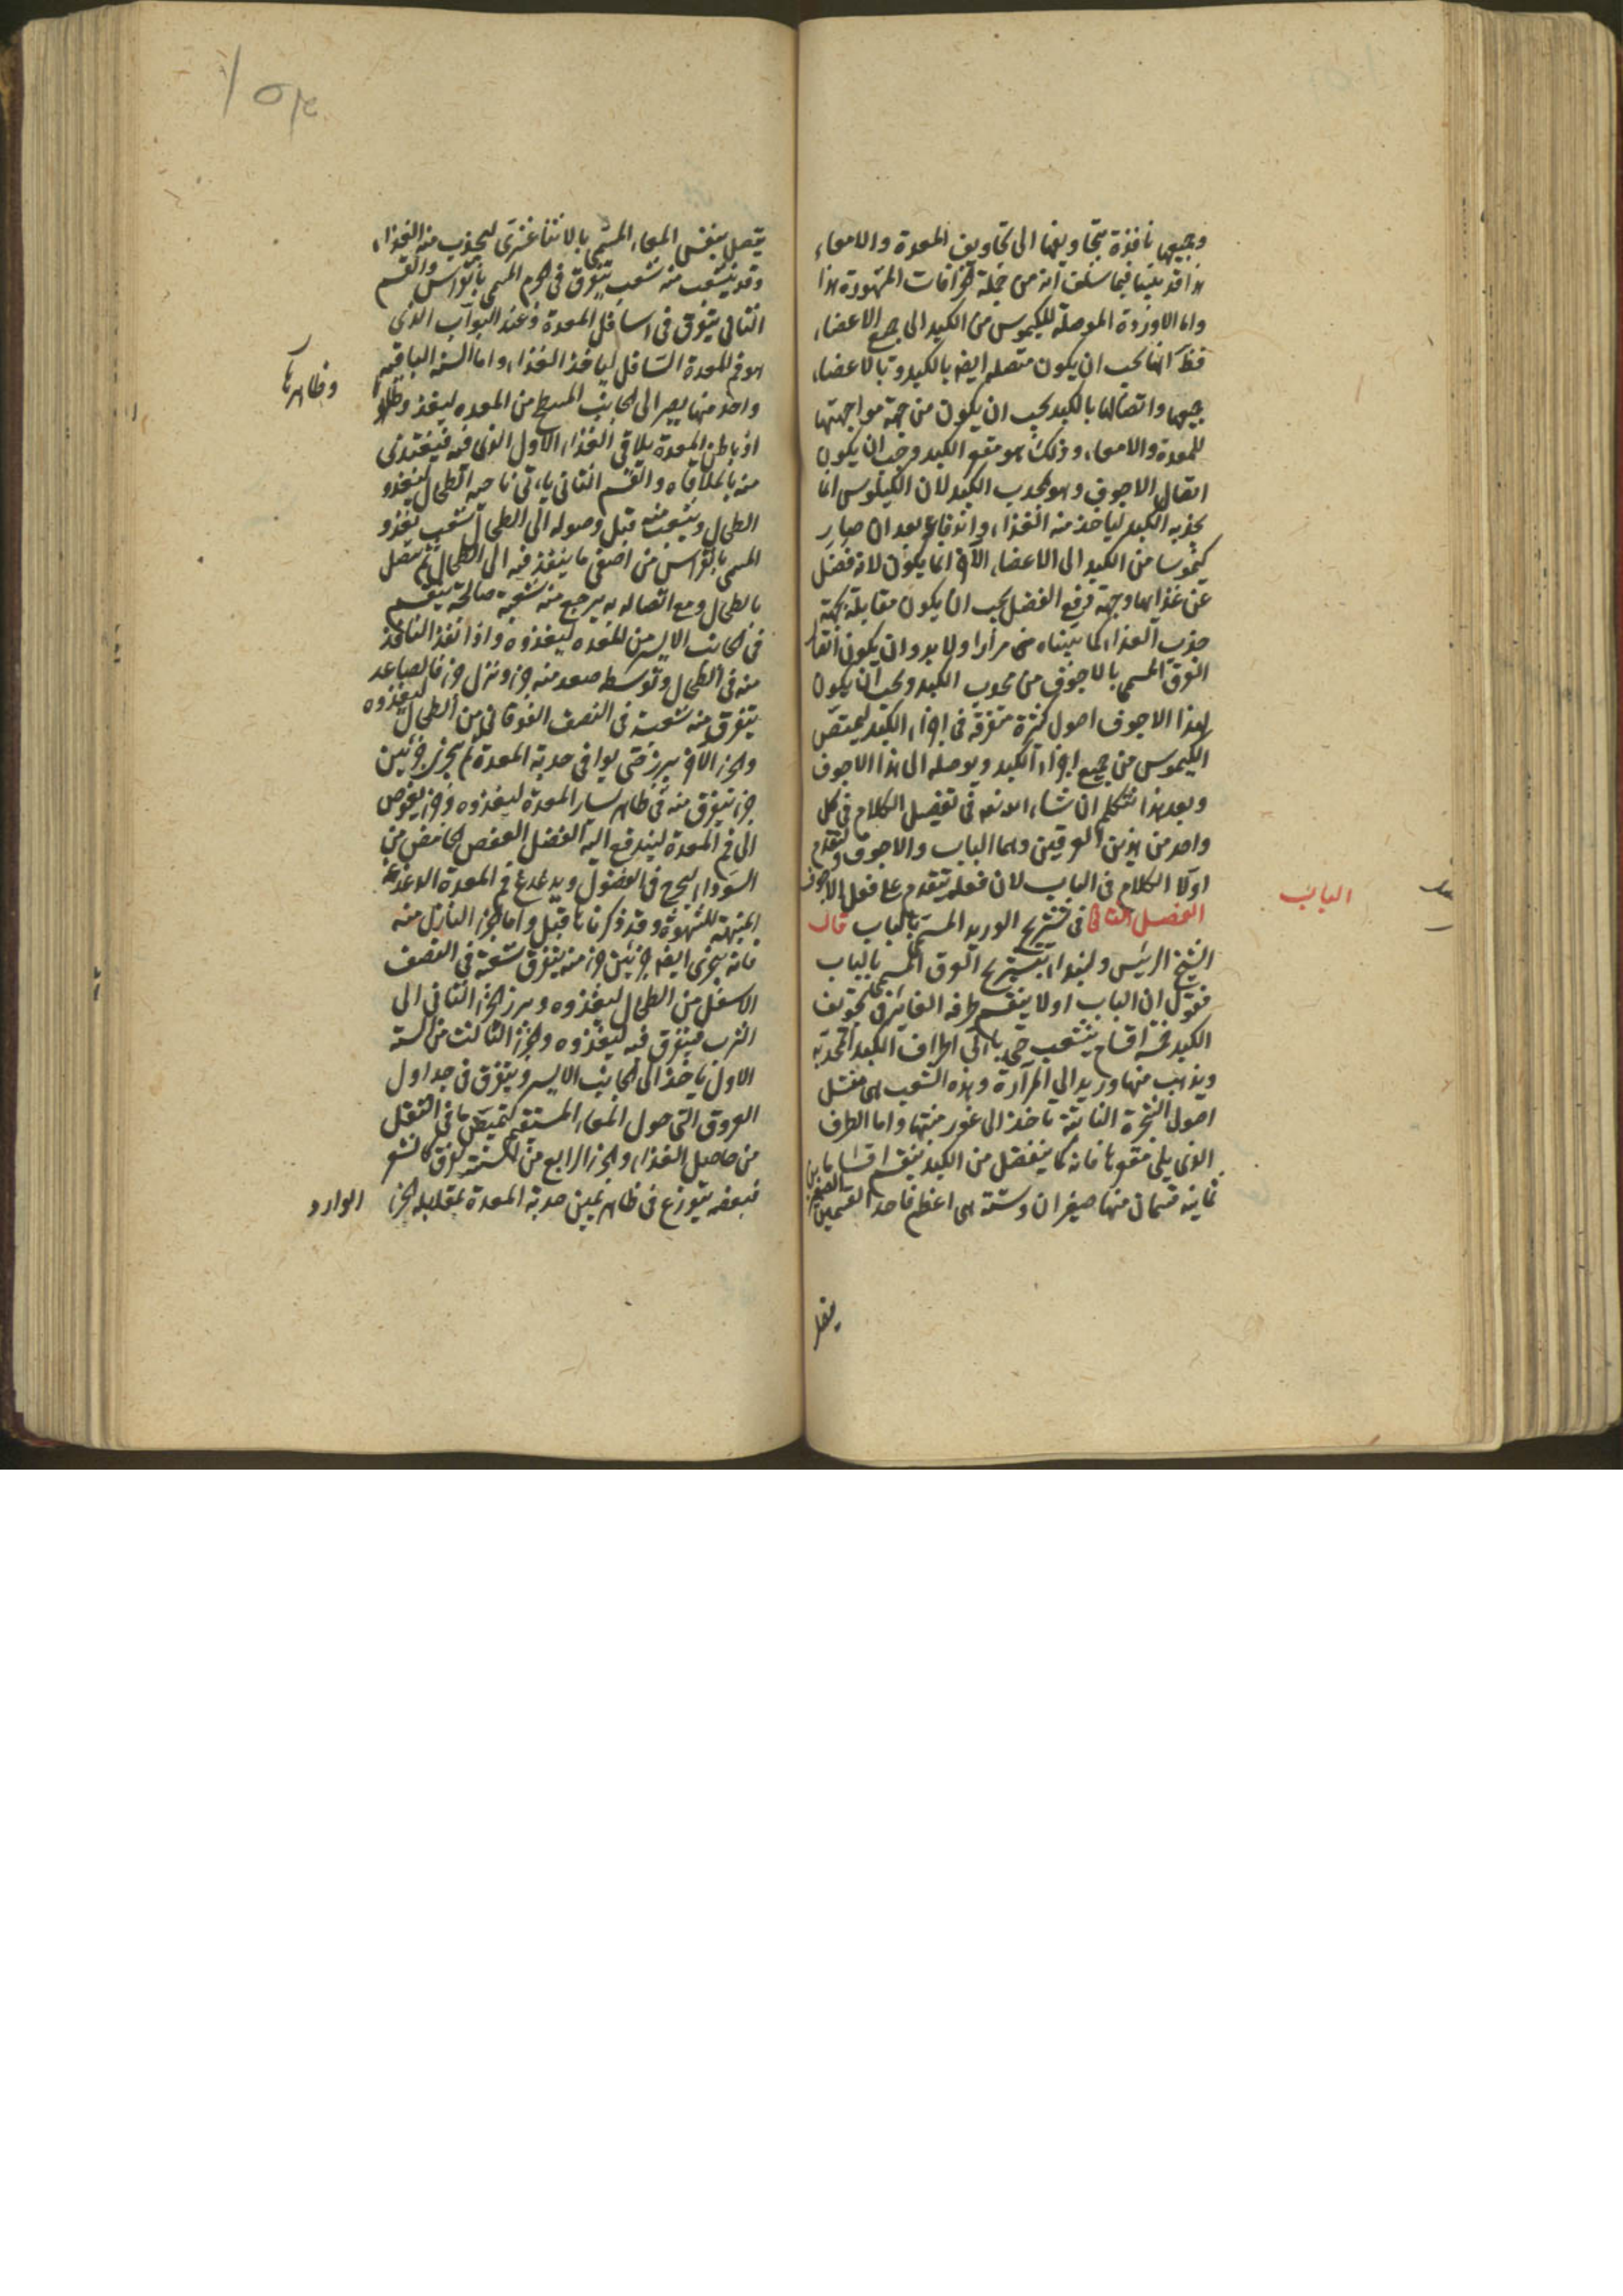 وجيهها نافذة بتجاويفها الى تجاويف المعدة والامعاء
هذا قد بينا فيما سلف انه من جملة الخرافات المشهورة هذا
واما الاوردة الموصلة للكيموس من الكبد الى جميع الاعضاء
فظ انها يجب ان يكون متصلة ايضا بالكبد وبالاعضاء
جميعها واتصالها بالكبد يجب ان يكون من جهة مواجهتها
للمعدة والامعاء وذلك هو مقعر الكبد وجب ان يكون
اتصال الاجوف وهو محدب الكبد لان الكيلوس انما
يجذبه الكبد لياخذ منه الغذاء واندفاعه بعد ان صار
كيموسا من الكبد الى الاعضاء الاخر انما يكون لانه فضل
عن غذائها وجهة دفع الفضل يجب ان يكون مقابلة لجهة
جذب الغذاء كما بيناه مرارا ولا بد وان يكون اتصال
العرق المسمى بالاجوف من محدب الكبد ويجب ان يكون
لهذا الاجوف اصول كثيرة متفرقة في اجزاء الكبد ليمتص
الكيموس من جميع اجزاء الكبد ويوصله الى هذا الاجوف
وبعد هذا نتكلم ان شاء الله تعه في تفصيل الكلام في كل
واحد من هذين العرقين وهما الباب والاجوف ولنقدم
اولا الكلام في الباب لان فعله يتقدم على فعل الاجوف
الفصل الثاني في تشريح الوريد المسمى بالباب قال
الباب
الشيخ الرئيس ولنبداء بتشريح العرق المسمى بالباب
فنقول ان الباب اولا ينقسم طرفه الغائر في تجويف
الكبد خمسة اقسام يتشعب حتى ياتي اطراف الكبد المحدبة
ويذهب منها وريد الى المرارة وهذه الشعب هي مثل
اصول الشجرة النابتة تاخذ الى غور منبتها واما الطرف
الذي يلي مقعرها فانه كما ينفصل من الكبد ينقسم اقساما
ثمانية قسمان منها صغيران وستة هي اعظم فاحد القسمين الصغيرين
يتصل بنفس المعاء المسمى بالاثنا عشرى ليجذب منه الغذاء
وقد يتشعب منه شعب يتفرق في الجرم المسمى بانقراس والقسم
الثاني يتفرق في اسافل المعدة وعند البواب الذي
هو فم المعدة السافل لياخذ الغذاء واما الستة الباقية
واحد منها يصير الى الجانب المسطح من المعدة ليغذو ظاهرها
وظاهرها
اذ باطن المعدة يلاقي الغذاء الاول الذي فيه فيغتذي
منه بالملاقاه والقسم الثاني ياتي ناحية الطحال ليغذو
الطحال ويتشعب منه قبل وصوله الى الطحال شعب تغذو
المسمى بانقراس من اصفى ما ينفذ فيه الى الطحال ثم يتصل
بالطحال ومع اتصاله به يرجع منه شعبة صالحة ينقسم
في الجانب الايسر من المعدة ليغذوه واذا نفذ النافذ
منه في الطحال وتوسطه صعد منه جزء ونزل جزء فالصاعد
يتفرق منه شعبة في النصف الفوقاني من الطحال ليغذوه
والجزء الاخر يبرز حتى يوافي حدبة المعدة ثم يتجزى جزئين
جزء يتفرق منه في ظاهر يسار المعدة ليغذوه وجزء يغوص
الى فم المعدة ليندفع اليه الفضل العفص الحامض من
السوداء ليخرج في الفضول ويدغدغ فم المعدة الدغدغة
المنبهة للشهوة وقد ذكرناها قبل واما الجزء النازل منه
فانه يتجزى ايضا جزئين جزء منه يتفرق شعبة في النصف
الاسفل من الطحال ليغذوه ويبرز الجزء الثاني الى
الثرب فيتفرق فيه ليغذوه والجزء الثالث من الستة
الاول ياخذ الى الجانب الايسر ويتفرق في جداول
العروق التي حول المعاء المستقيم ليمتص ما في الثفل
من حاصل الغذاء والجزء الرابع من الستة يتفرق كالشعر
فبعضه يتوزع في ظاهر يمين حدبة المعدة مقابلة الجزء
الوارد